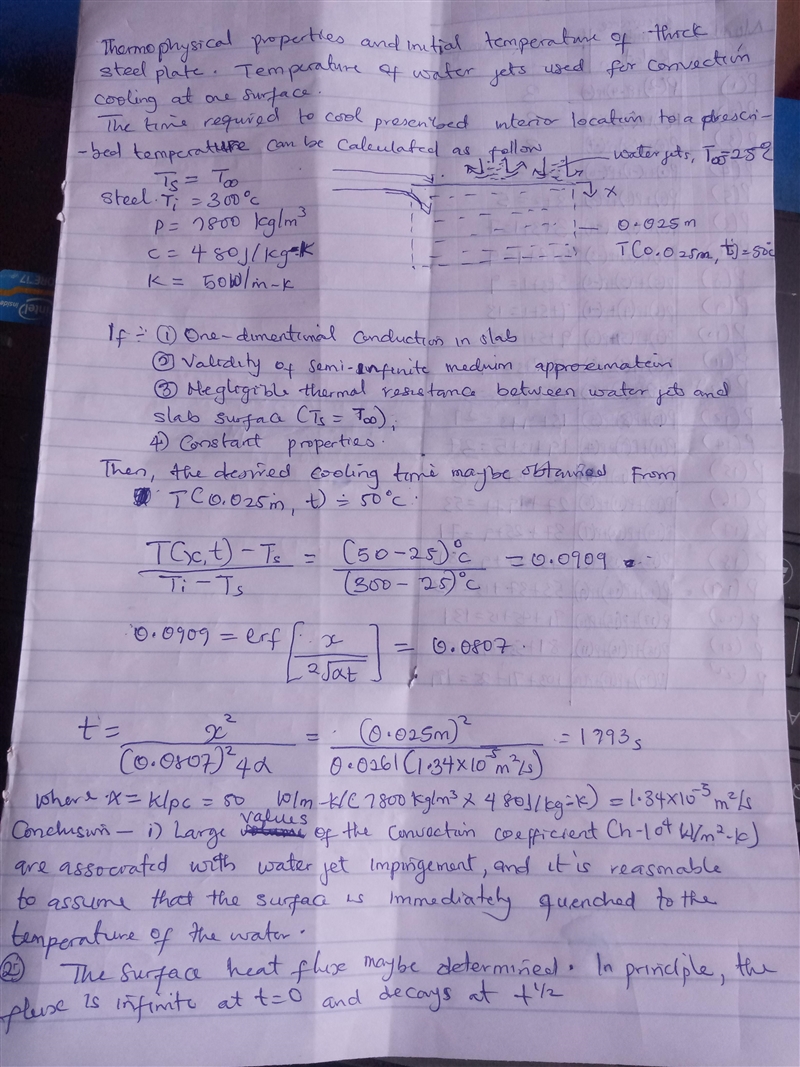 Thermophysical properties and initial temperature of thick
steel plate. Temperature of water jets used for convection
cooling at one surface.
The time required to cool prescribed interior location to a prescri-
-bed temperature can be calculated as follow
water jets, T∞=25°C
Ts = T∞
x
Steel Ti = 300°c
ρ = 7800 kg/m³
0.025m
c = 480J/kg-K
T(0.025m, t) = 50°C
K = 50W/m-k
If :- ① One-dimentional conduction in slab
② Validity of semi-infinite medium approximation
③ Negligible thermal resistance between water jets and
slab surfac (Ts = T∞),
4) Constant properties.
Then, the desired cooling time maybe obtained from
T(0.025m, t) = 50°C.
T(x,t) - Ts / Ti - Ts = (50-25)°c / (300-25)°c = 0.0909
0.0909 = erf [x / 2√αt] = 0.0807.
t = x² / (0.0807)² 4α = (0.025m)² / 0.0261(1.34×10⁻⁵m²/s) = 1793s
where α = k/ρc = 50 W/m-k/(7800 kg/m³ × 480J/kg-k) = 1.34×10⁻⁵ m²/s
Conclusion - i) Large values of the convection coefficient (h~10⁴ W/m²-k)
are associated with water jet impingement, and it is reasonable
to assume that the surface is immediately quenched to the
temperature of the water.
② The surface heat flux maybe determined. In principle, the
fluxe is infinite at t=0 and decays at t½
intel
inside